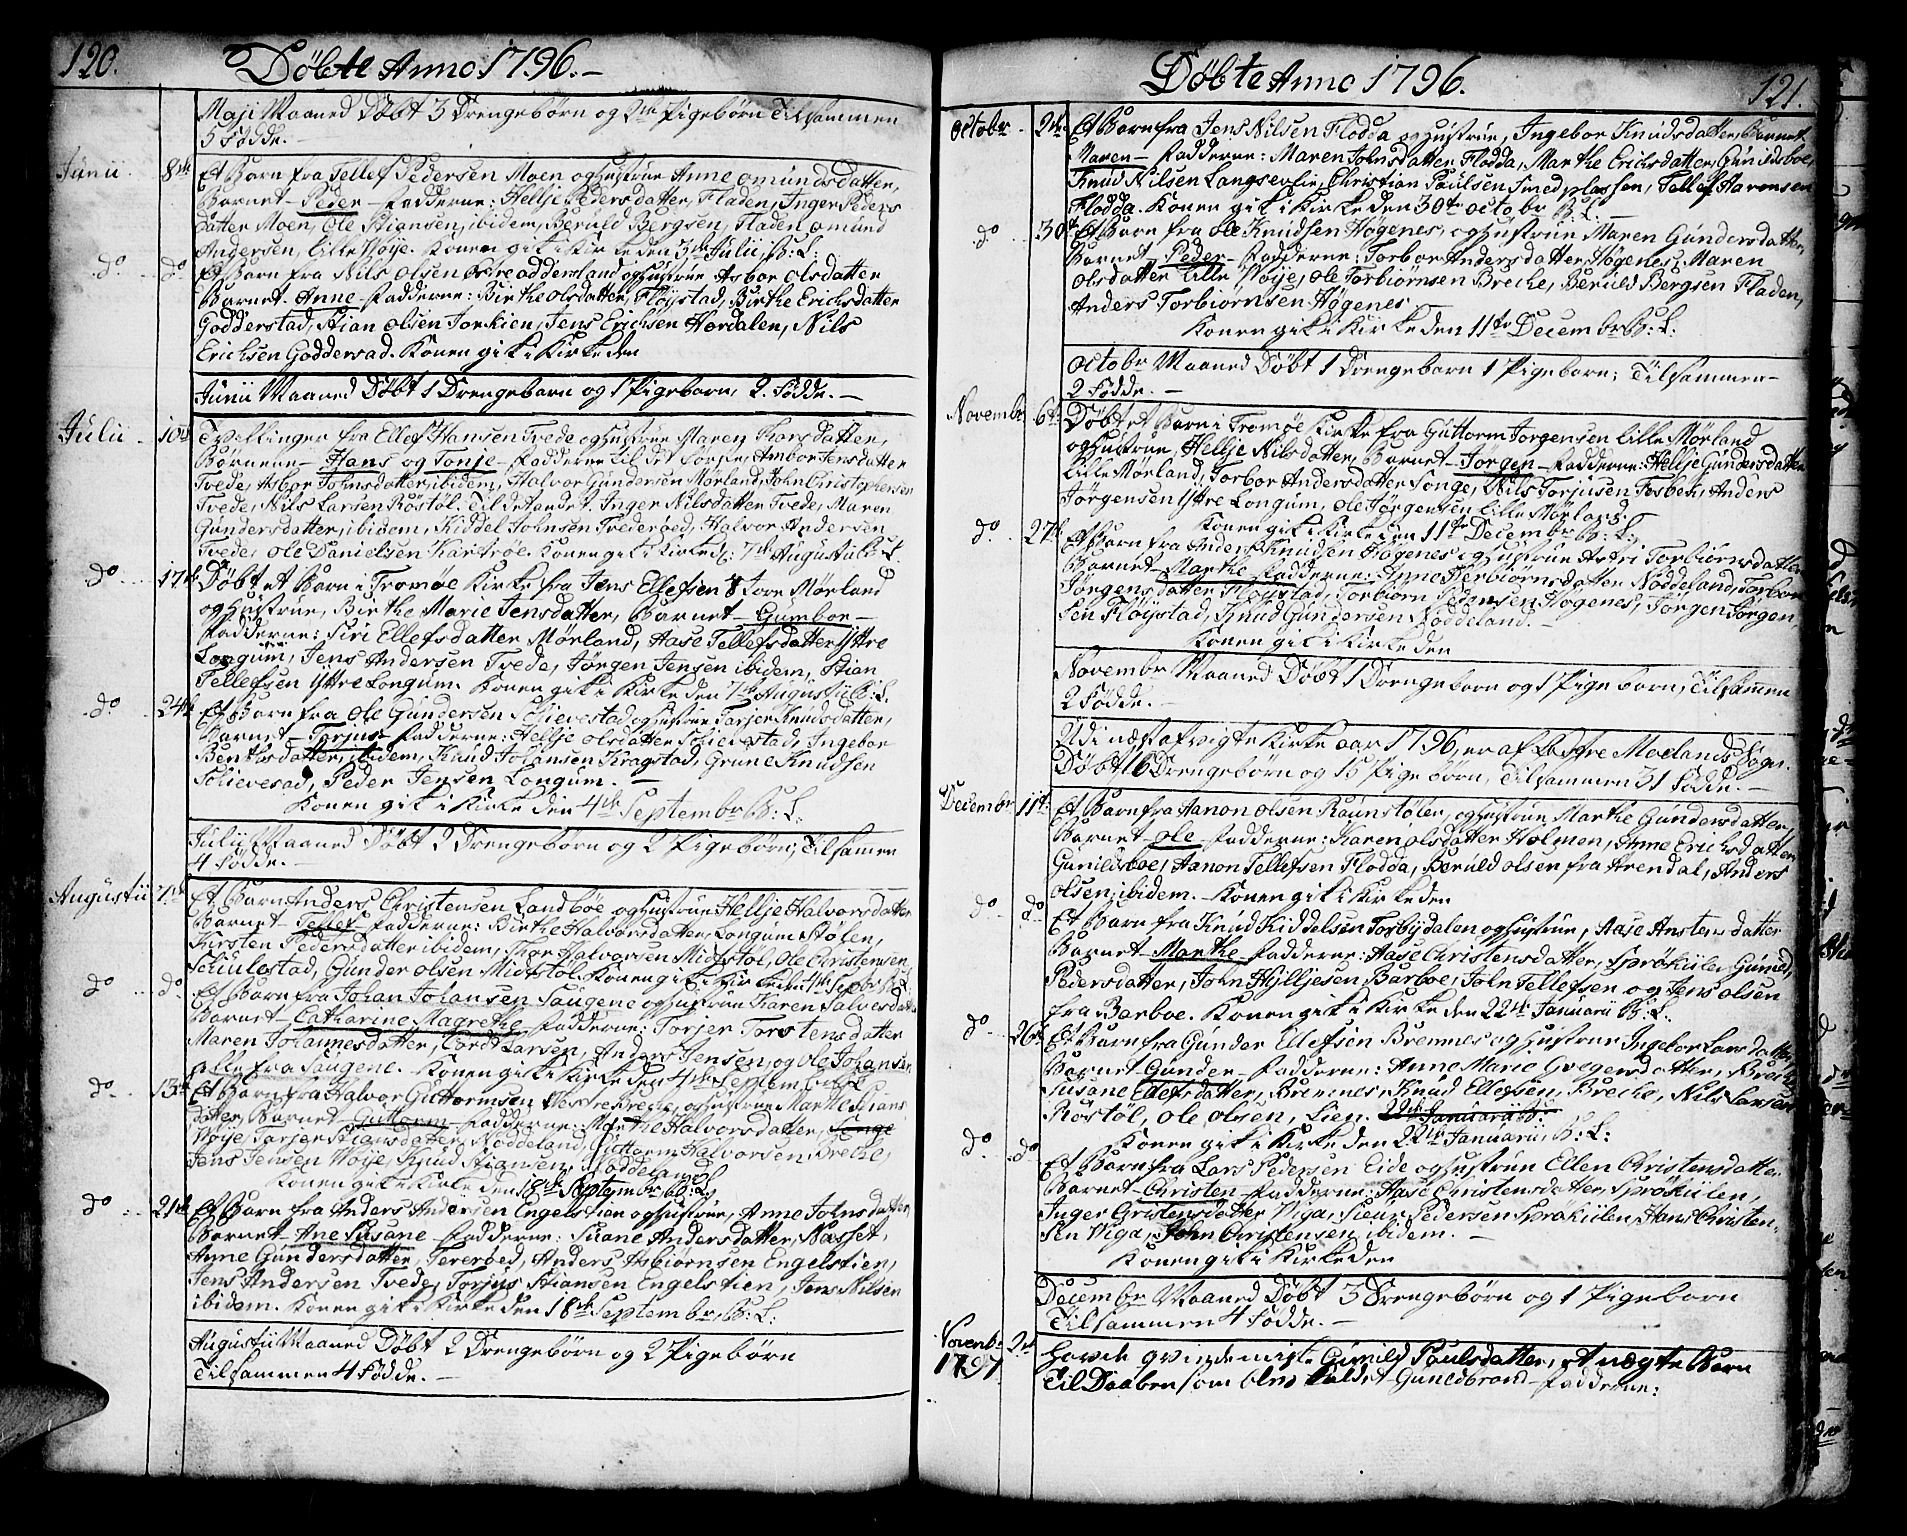 120. Døbte Anno 1796.-
Maji Maaned Døbt 3 Drengebørn og 2de Pigebørn Tilsammen
5 Fødde. -
Junii. 8de Et Barn fra Tellef Pedersen Moen og Hustrue Anne Omundsdatter,
Barnet - Peder - Fadderne: Hellje Pedersdatter, Fladen, Inger Peders
datter Moen, Ole Stiansen, ibidem, Beruld Bergsen, Fladen, Omund
Andersen, Lille Woije. Konen gik i Kirke den 3de Julii, B: L:
do do Et Barn fra Nils Olsen Østre Oddersland og Hustrue Asbor Olsdatter
Barnet - Anne - Fadderne: Birthe Olsdatter, Fløjstad, Birthe Erichsdatter
Godderstad, Stian Olsen Torkien, Jens Erichsen Hørdalen, Nils
Erichsen Goddersad. Konen gik i Kirke den
Junii Maaned Døbt 1 Drengebarn og 1 Pigebarn, 2. Fødde. -
Julii. 10de Tvillinger fra Ellef Hansen Tvede og Hustrue Maren Larsdatter,
Børnene - Hans og Tonje - Fadderne til det første, Ambor Jensdatter
Tvede, Asbor Johnsdatter, ibidem, Halvor Gundersen Mørland, John Christophersen
Tvede, Nils Larsen Rostøl. Til det andet. Inger Nilsdatter Tvede, Maren
Gundersdatter, ibidem, Kiddel Johnsen Tvederøed, Halvor Andersen
Tvede, Ole Danielsen Kartrøe. Konen gik i Kirke d: 7de Augustii B: L:
do 17de Døbt et Barn i Tromøe Kirke fra Jens Ellefsen Store Mørland
og Hustrue, Birthe Marie Jensdatter, Barnet - Gumbor -
Fadderne: Siri Ellefsdatter Mørland, Aase Tellefsdatter Yttre
Longum, Jens Andersen Tvede, Jørgen Jensen ibidem, Stian
Tellefsen Yttre Longum. Konen gik i Kirke den 7de Augustii B: L:
do 24de Et Barn fra Ole Gundersen Schievestad og Hustrue Torjer Knudsdatter,
Barnet - Torjus - Fadderne: Hellje Olsdatter Schievestad, Ingebor
Benthsdatter, ibidem, Knud Johansen Kragstad, Grune Knudsen
Schievesad, Peder Jensen Longum. -
Konen gik i Kirke den 4de Septembr B: L:
Julii Maaned Døbt 2 Drengebørn og 2 Pigebørn, Tilsamen
4 Fødde. -
Augustii 7de Et Barn Anders Christensen Landbøe og Hustrue Hellje Halvorsdatter
Barnet - Tellef - Fadderne: Birthe Halvorsdatter, Longum Stølen,
Kirsten Pedersdatter ibidem, Thor Halvorsen Midtstøl, Ole Christensen
Schiulestad, Gunder Olsen Midtstøl. Konen gik i Kirke den 4de Septbr B: L:
do do Et Barn fra Johan Johansen Saugene og Hustrue Karen Salvesdatter
Barnet - Catharine Magrethe, Fadderne: Torjer Torstensdatter
Maren Johannesdatter, Cordt Larsen, Anders Jensen, og Ole Johansen
alle fra Saugene. Konen gik i Kirke den 4de Septembr B: L:
do 15de Et Barn fra Halvor Guttormsen Westre Breche, og Hustrue Marthe Stians
datter, Barnet Guttorm Fadderne: Marthe Halvorsdatter, Songe
Woije, Torjer Stiansdatter, Noddeland, Guttorm Halvorsen Breche,
Jens Jensen Woije, Knud Stiansen, Noddeland
Konen gik i Kirke den 18de Septembr, B: L:
do 21de Et Barn fra Anders Andersen Engelstien og Hustrue, Anne Johnsdatter,
Barnet - Ane Susane - Fadderne: Suane Andersdatter, Næsset,
Anne Gundersdatter, Tererøed, Anders Asbiørnsen Engelstien,
Jens Andersen Tvede, Torjus Stiansen Engelstien, Jens Nilsen
ibidem. Konen gik i Kirke den 18de Septembr, B: L:
Augustii Maaned Døbt 2 Drengebørn og 2 Pigebørn
Tilsammen 4 Fødde. -
Døbte Anno 1796. 121.
Octobr. 2de Et Barn fra Jens Nilsen Flodda og Hustrue, Ingebor Knudsdatter, Barnet
Maren - Fadderne: Maren Johnsdatter Flodda, Marthe Erichsdatter, Gunildsboe,
Knud Nilsen Langsevlie, Christian Paulsen Smedplassen, Tellef Havorsen
Flodda. Konen gik i Kirke den 30te Octobr B: L:
do 30te Et Barn fra Ole Knudsen Høgenes, og Hustrue Maren Gundersdatter,
Barnet - Peder - Fadderne: Torbor Andersdatter, Høgenes, Maren
Olsdatter Lille Woije, Ole Torbiørnsen Breche, Beruld Bergsen Fladen,
Anders Torbiørnsen Høgenes -
Konen gik i Kirke den 11te Decembr B: L:
Octobr Maaned Døbt 1 Drengebarn 1 Pigebarn; Tilsammen -
2 Fødde. -
Novembr 6te Døbt et Barn i Tromøe Kirke fra Guttorm Jørgensen Lille Mørland
og Hustrue, Hellje Nilsdatter, Barnet - Jørgen - Fadderne: Hellje Gundersdatter
Lille Mørland, Torbor Andersdatter Songe, Nils Torjusen Fosbek, Anders
Jørgensen Yttre Longum, Ole Jørgensen Lille Mørland.
Konen gik i Kirke den 11te Decembr B: L:
do 27de Et Barn fra Anders Knudsen Høgenes og Hustrue Astri Torbiørnsdatter,
Barnet - Marthe Fadderne: Anne Torbiørnsdatter Noddeland, Torbor
Jørgensdatter Fløystad, Torbiørn Pedersen Høgenes, Jørgen Jørgen
sen Fløystad, Knud Gundersen Noddeland. -
Konen gik i Kirke den
Novembr Maaned Døbt 1 Drengebarn og 1 Pigebarn, Tilsamen
2 Fødde. -
Udi næst afvigte Kirke aar 1796, er af Østre Moelands Sogn.
Døbt 16 Drengebørn og 15 Pigebørn, Tilsammen 31 Fødde. -
Decembr 11te Et Barn fra Aanon Olsen Raunstølen, og Hustrue, Marthe Gundersdatter,
Barnet - Ole - Fadderne: Karen Olsdatter Holmen, Anne Erichsdatter,
Gunildsboe, Aanon Tellefsen Flodda, Beruld Olsen fra Arendal, Anders
Olsen, ibidem. - Konen gik i Kirke den
do do Et Barn fra Knud Kiddelsen Fosbydalen og Hustrue, Aase Anstensdatter
Barnet - Marthe - Fadderne: Aase Christensdatter, Sprøkiilen Gumed
Pedersdatter, John Hylljesen Barboe, John Tellefsen og Jens Olsen
fra Barboe. Konen gik i Kirke den 22de Januarii B: L:
do 26de Et Barn fra Gunder Ellefsen Brennes og Hustrue Ingebor Larsdatter,
Barnet - Gunder - Fadderne: Anne Marie Gregersdatter, Breche,
Susane Ellefsdatter, Brennes, Knud Ellefsen, Breche, Nils Larsen
Rostøl, Ole Olsen, Lien. 22de Januarii B:
Konen gik i Kirke den 22de Januarii, B: L:
do do Et Barn fra Lars Pedersen Eide og Hustrue Ellen Christensdatter
Barnet - Christen - Fadderne: Aase Christensdatter, Sprøkiilen,
Inger Cristensdatter Viga, Siur Pedersen Sprøkiilen, Hans Christen-
sen Viga, John Christensen ibidem. -
Konen gik i Kirke den
Decembr Maaned Døbt 3 Drengebørn og 1 Pigebarn
Tilsammen 4 Fødde. -
Novembr 1797 2de Hovde qvindemiste Gunild Paulsdatter, et uægte Barn
til Daaben som blev kaldet - Guneldbrand - Fadderne: